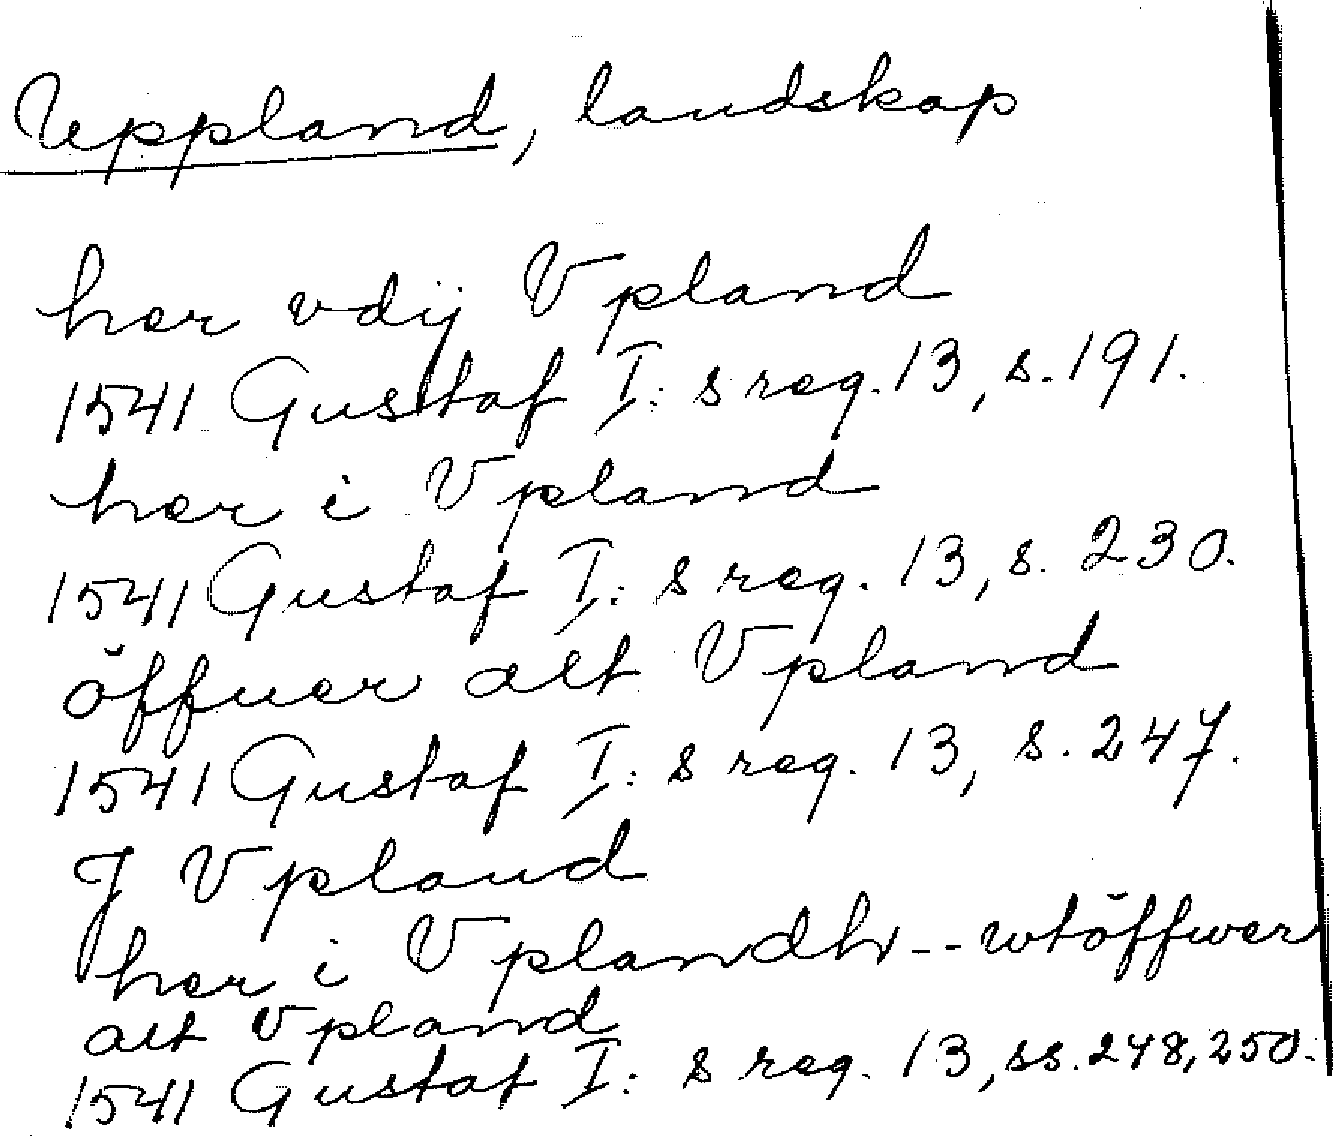 Uppland, landskap
her vdij Vpland
1541 Gustaf I:s reg. 13, s. 191.
her i Vpland
1541 Gustaf I:s reg. 13, s. 230.
öffuer alt Vpland
1541 Gustaf I:s reg. 13, s. 247.
J Vpland
her i Vplandh -- wtöffwer
alt Vpland
1541 Gustaf I:s reg. 13, ss. 248, 250.